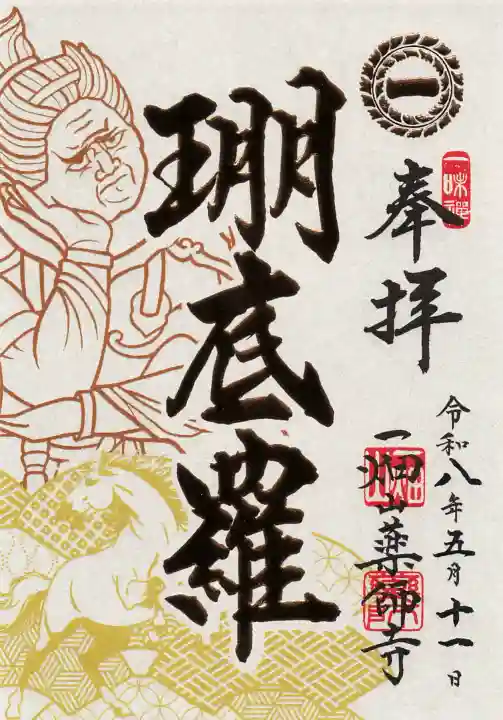 一
一味禅
奉拝
令和八年五月十一日
一畑山薬師寺
珊底羅